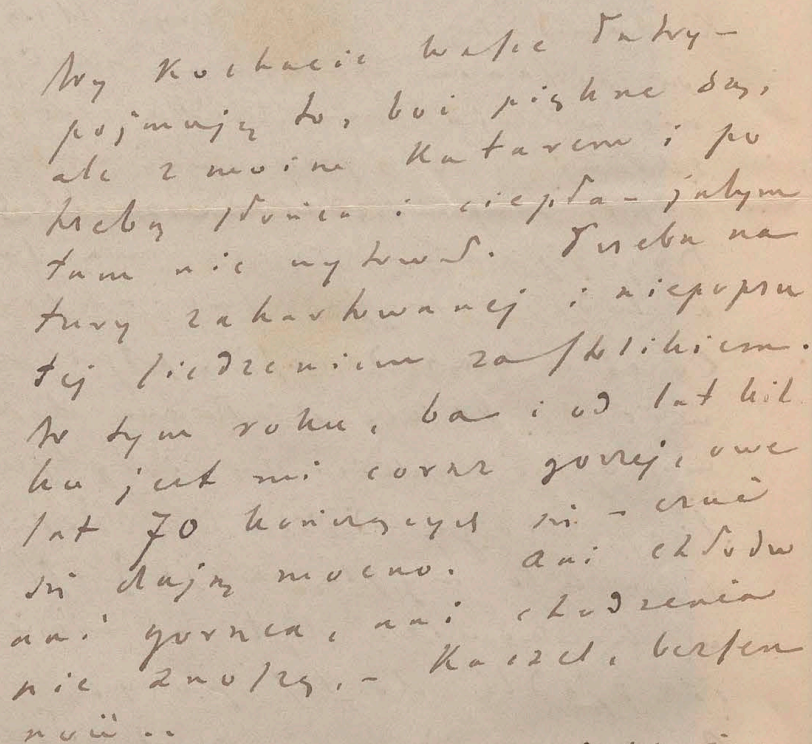 Wy kochacie wasze Tatry –
pojmuję to, boć piękne są,
ale z moim Katarem i po
trzebą słońca i ciepła – jabym
tam nie wyżował. Trzeba na
tury zahartowanej i niepopsu
tej siedzeniem za stolikiem.
W tym roku, ba i od lat kil
ku jest mi coraz gorzej, owe
lat 70 kończących się – czuć
się dają mocno. Ani chłodu
ani gorąca, ani chodzenia
nie znoszę. – Kaszel, bezsen
ność..